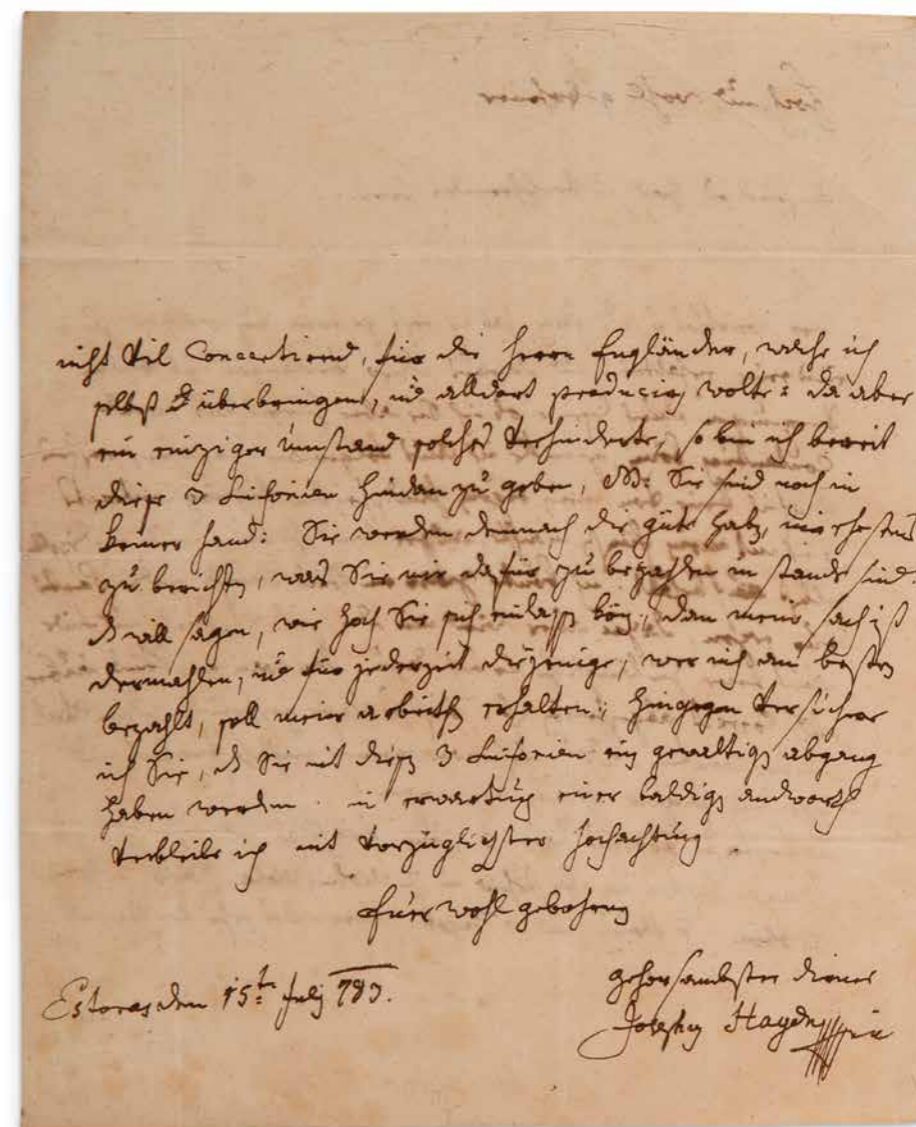 nicht vil Concertirend, für die Herrn Engländer, welche ich
selbst überbringen, und alldort produciren wolte: da aber
ein einziger umstand solches verhinderte, so bin ich bereit
diese 3 Sinfonien hindan zu geben, NB: Sie sind noch in
keiner hand: Sie werden demnach die güte haben, mir ehestens
zu berichten, was Sie mir dafür zu bezahlen im stande sind
das will sagen, wie hoch Sie sich einlassen können, dan mein sach ist
dermahlen, und für jederzeit diejenige, wer mich am besten
bezahlt, soll meine arbeithen erhalten; hingegen versichere
ich Sie, das Sie mit diesen 3 Sinfonien ein gewaltigen abgang
haben werden. in erwartung einer baldigen andworth
verbleibe ich mit vorzüglichster Hochachtung
Euer wohl gebohren
gehorsambster diener
Estoras den 15ten July 783.
Joseph Haydn mpria